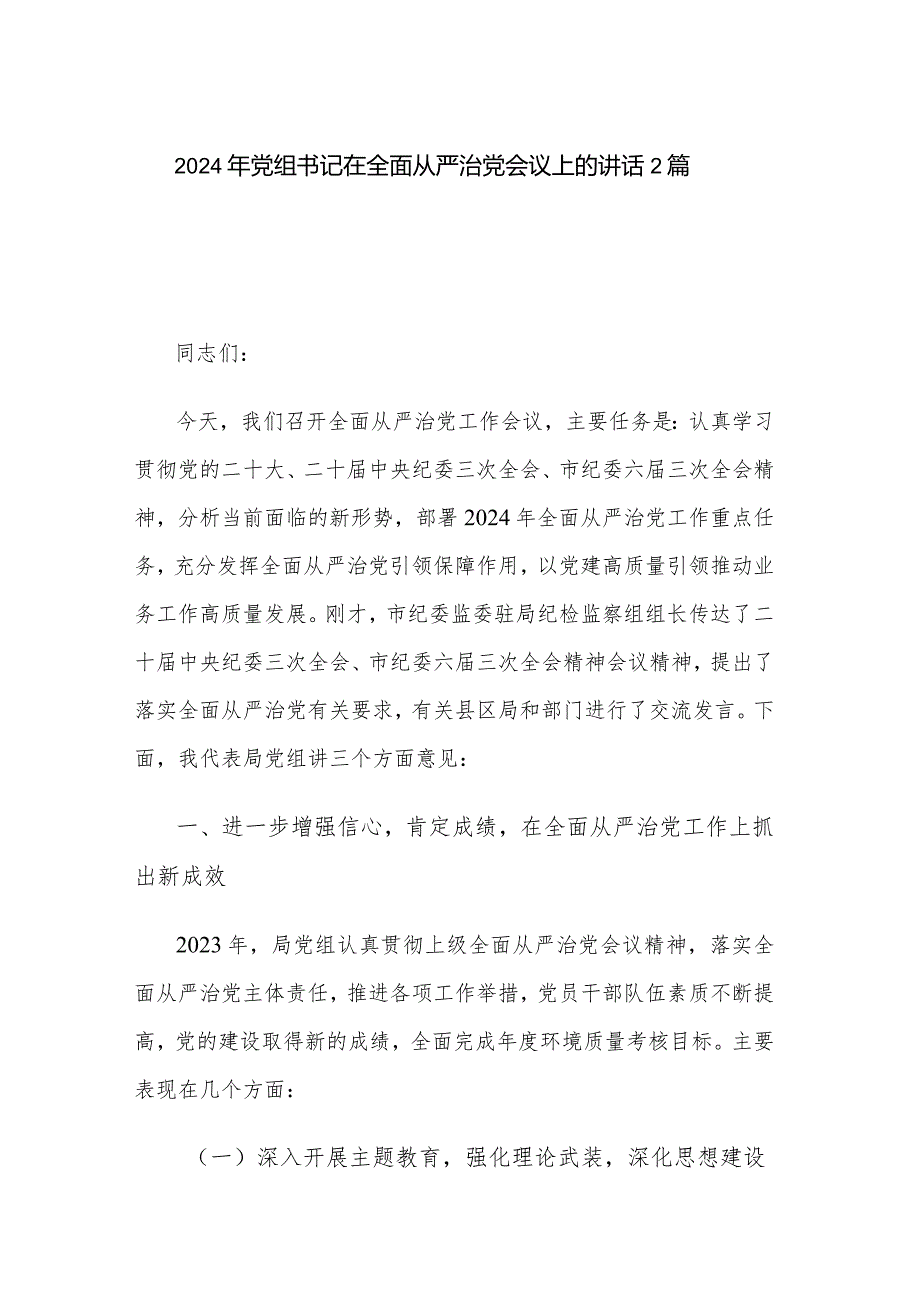 2024年党组书记在全面从严治党会议上的讲话2篇
同志们：
今天，我们召开全面从严治党工作会议，主要任务是：认真学习
贯彻党的二十大、二十届中央纪委三次全会、市纪委六届三次全会精
神，分析当前面临的新形势，部署2024年全面从严治党工作重点任
务，充分发挥全面从严治党引领保障作用，以党建高质量引领推动业
务工作高质量发展。刚才，市纪委监委驻局纪检监察组组长传达了二
十届中央纪委三次全会、市纪委六届三次全会精神会议精神，提出了
落实全面从严治党有关要求，有关县区局和部门进行了交流发言。下
面，我代表局党组讲三个方面意见：
一、进一步增强信心，肯定成绩，在全面从严治党工作上抓
出新成效
2023年，局党组认真贯彻上级全面从严治党会议精神，落实全
面从严治党主体责任，推进各项工作举措，党员干部队伍素质不断提
高，党的建设取得新的成绩，全面完成年度环境质量考核目标。主要
表现在几个方面：
（一）深入开展主题教育，强化理论武装，深化思想建设